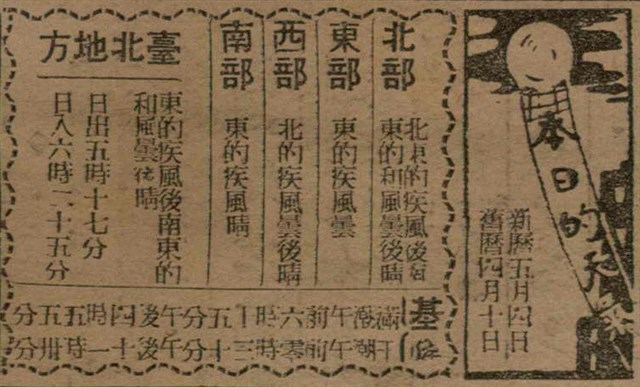 本日的天
新曆五月四日
舊曆四月十日
北部
北東的疾風後
東的和風曇後晴
東部
東的疾風曇
西部
北的疾風曇後晴
南部
東的疾風晴
臺北地方
東的疾風後南東的
和風曇後晴
日出五時十七分
日入六時二十五分
基隆
滿潮午前六時十五分午後四時五五分
干潮午前零時三十分午後十一時卅分